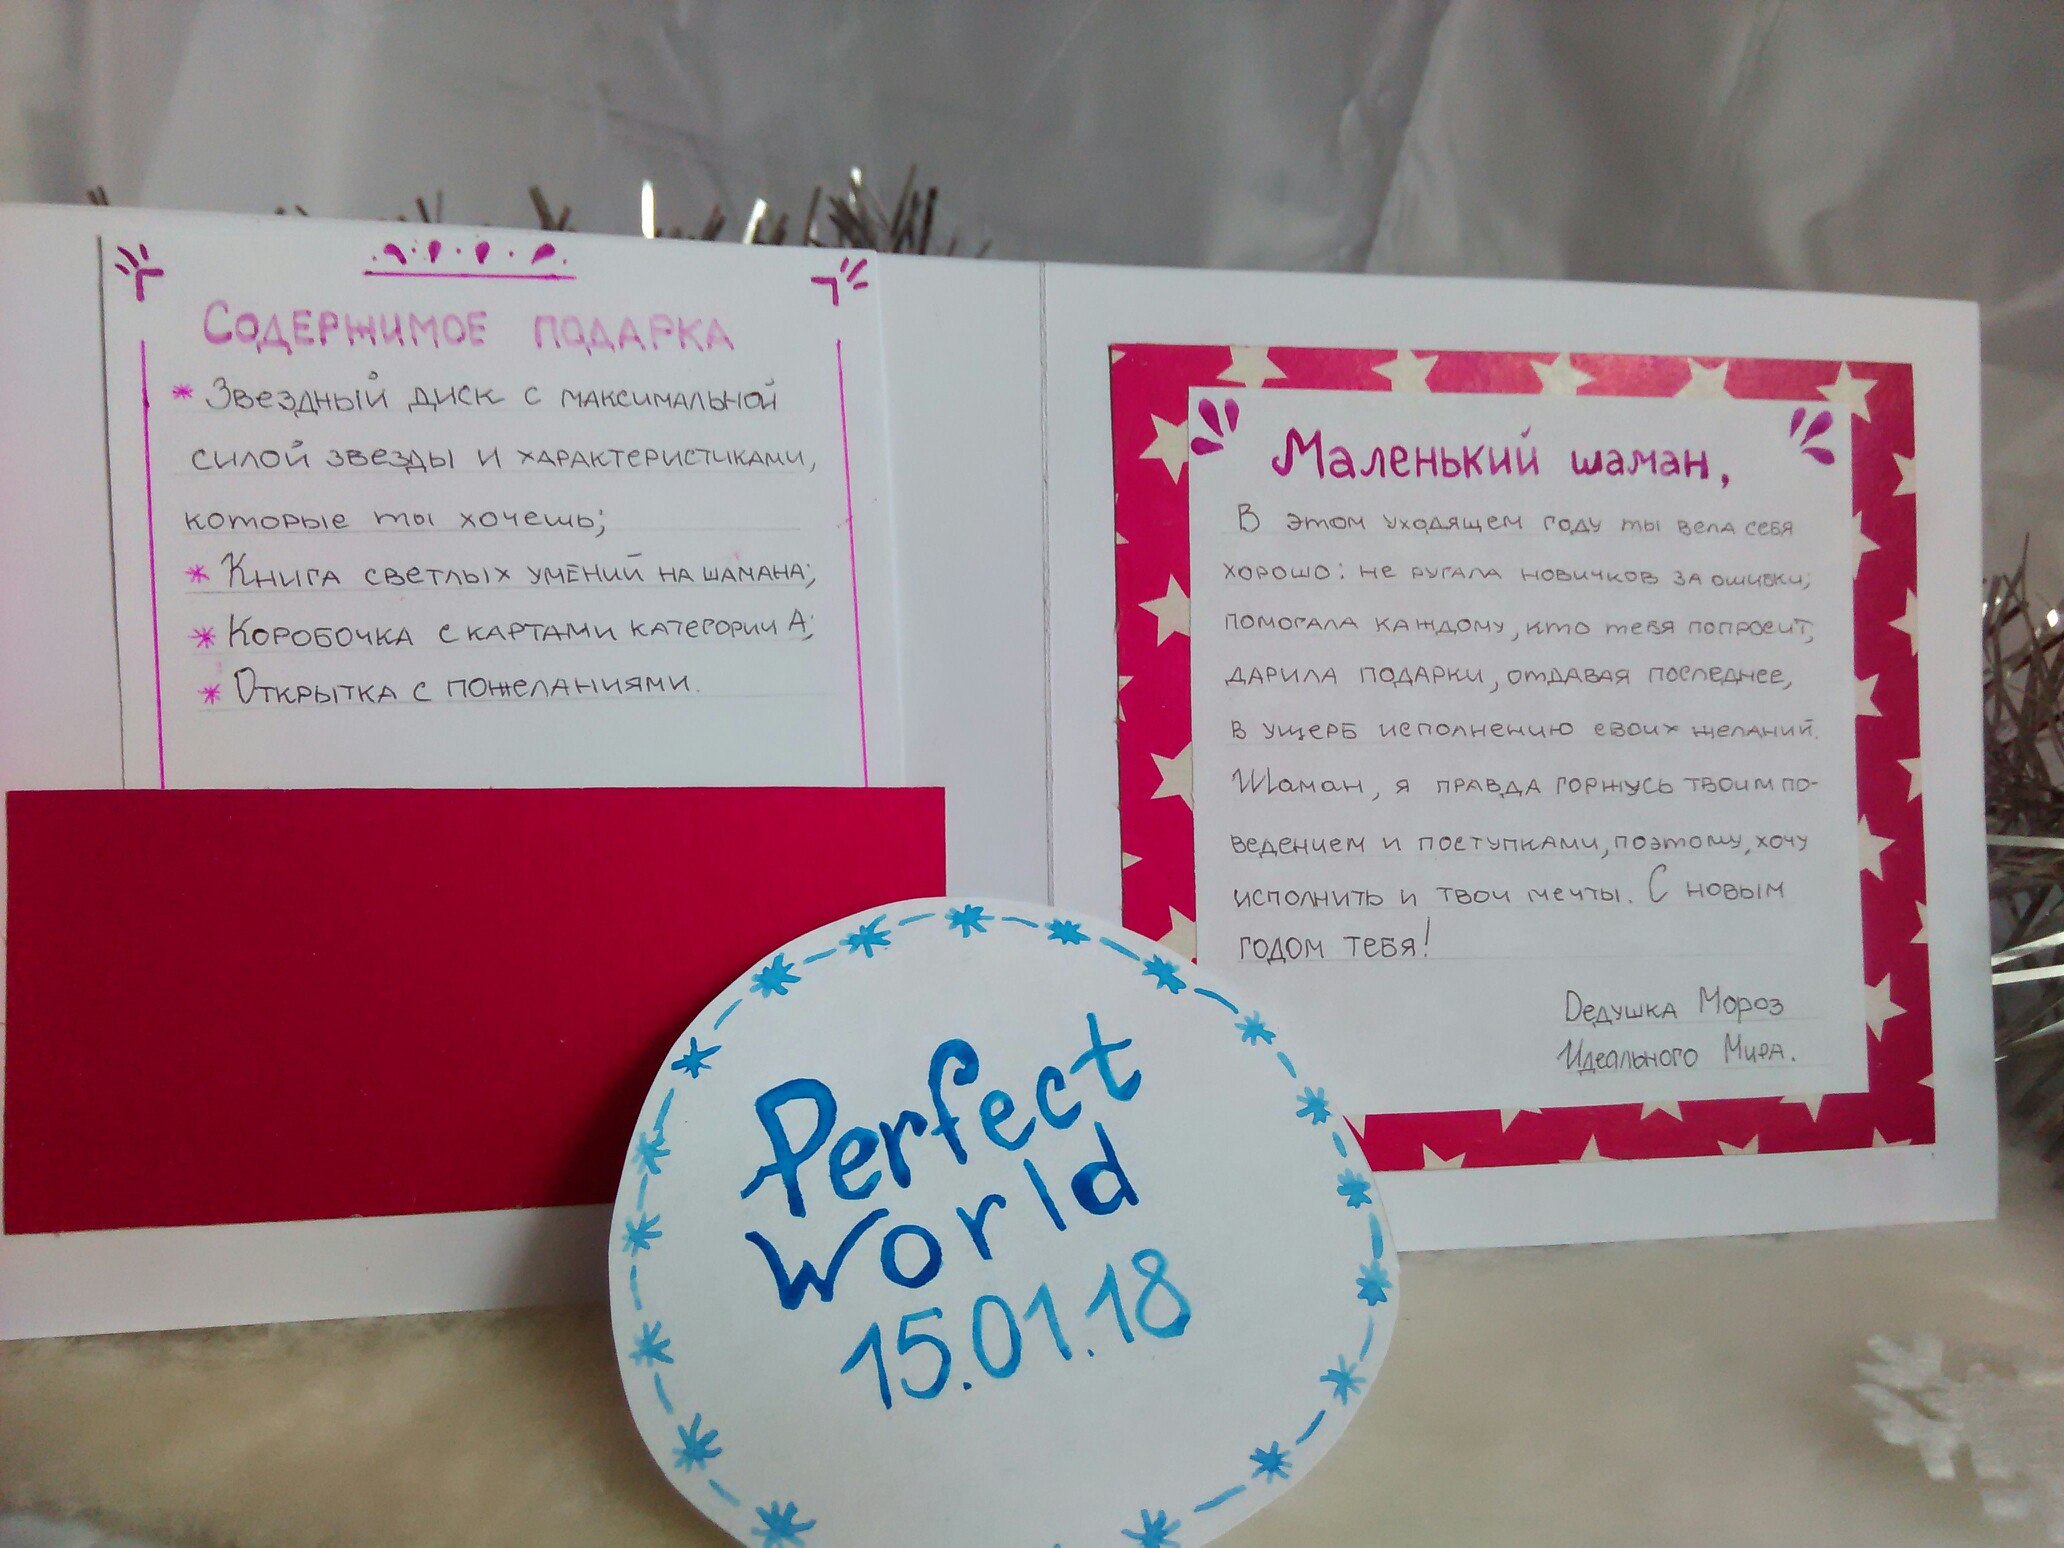 Содержимое подарка
* Звездный диск с максимальной
силой звезды и характеристиками,
которые ты хочешь;
* Книга светлых умений на шамана;
* Коробочка с картами категории А;
* Открытка с пожеланиями.
Маленький шаман,
В этом уходящем году ты вела себя
хорошо: не ругала новичков за ошибки;
помогала каждому, кто тебя попросит,
дарила подарки, отдавая последнее,
в ущерб исполнению своих желаний.
Шаман, я правда горжусь твоим по-
ведением и поступками, поэтому, хочу
исполнить и твои мечты. С новым
годом тебя!
Дедушка Мороз
Идеального Мира.
Perfect
World
15.01.18